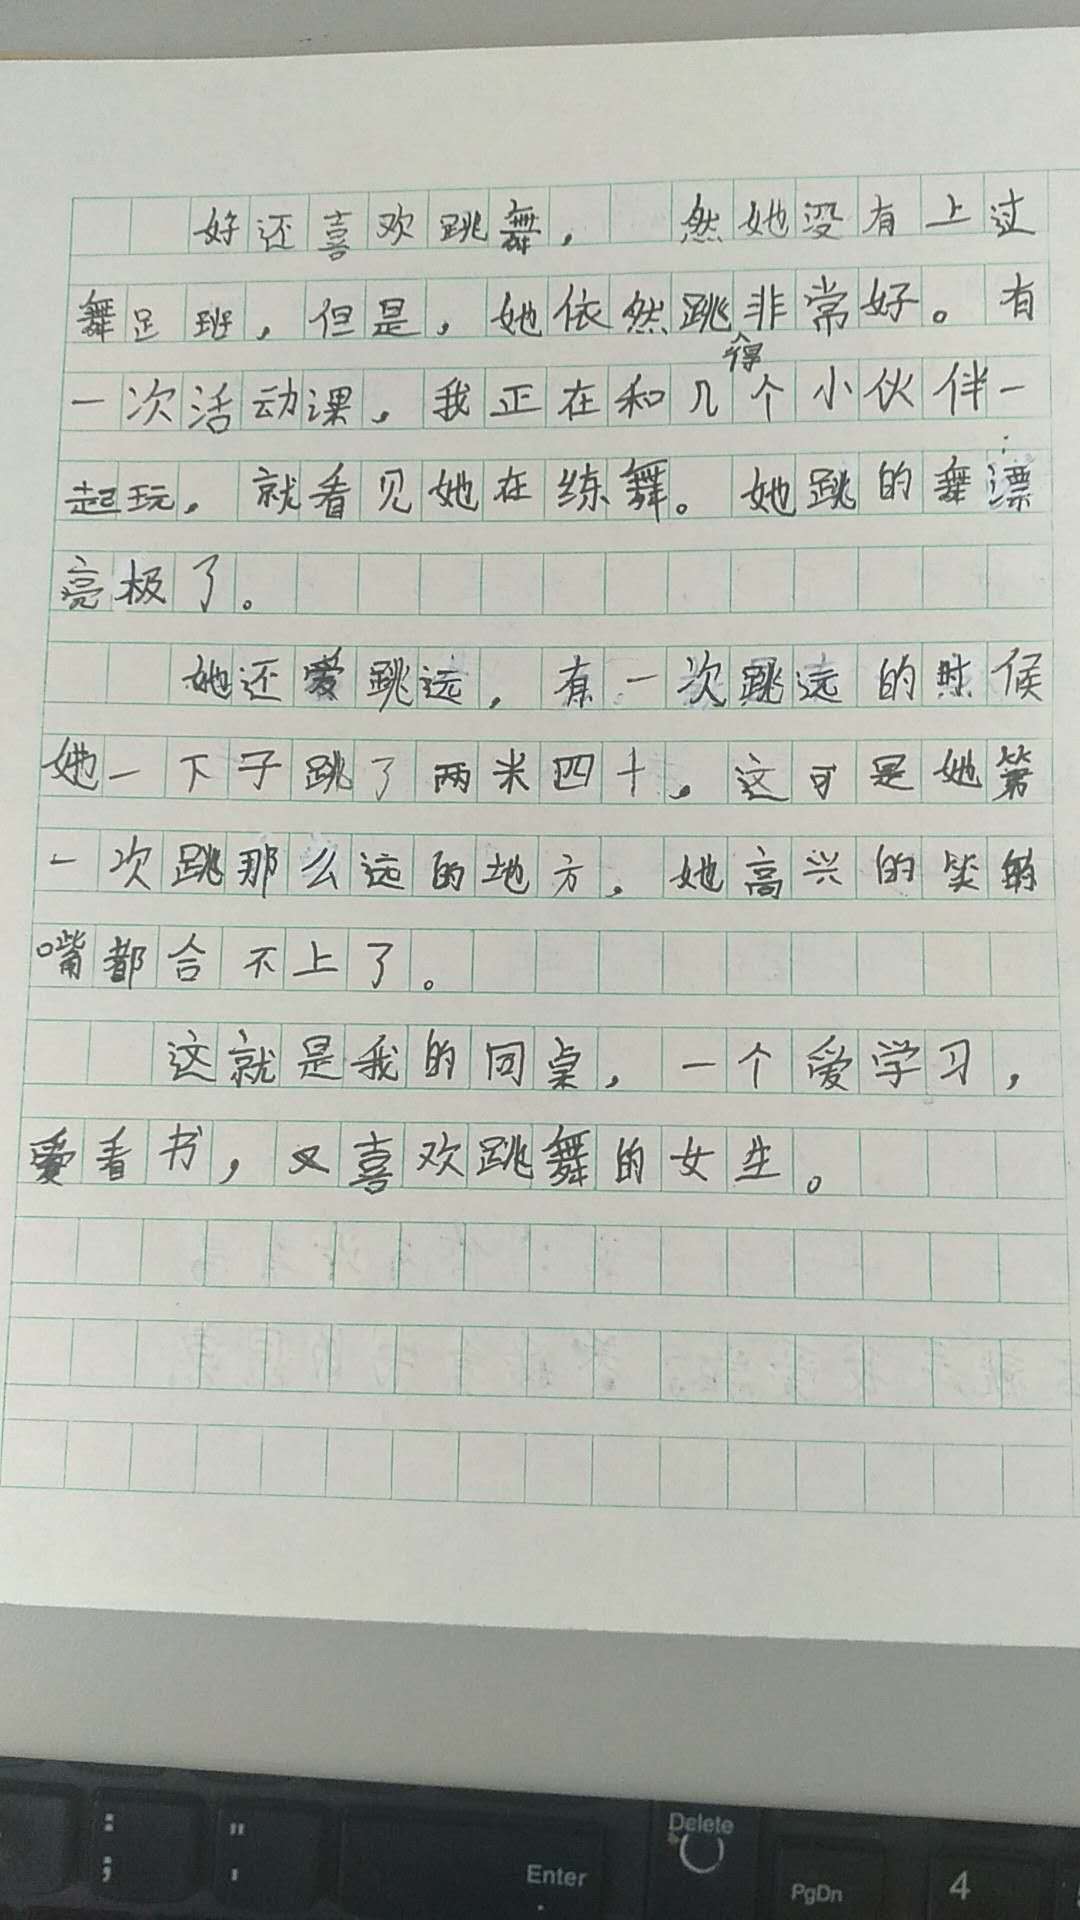 好还喜欢跳舞，然她没有上过
舞足班，但是，她依然跳得非常好。有
一次活动课，我正在和几个小伙伴一
起玩，就看见她在练舞。她跳的舞漂
亮极了。
她还爱跳远，有一次跳远的时候
她一下子跳了两米四十，这可是她第
一次跳那么远的地方，她高兴的笑的
嘴都合不上了。
这就是我的同桌，一个爱学习，
爱看书，又喜欢跳舞的女生。
: "
; '
Enter
Delete
PgDn
4